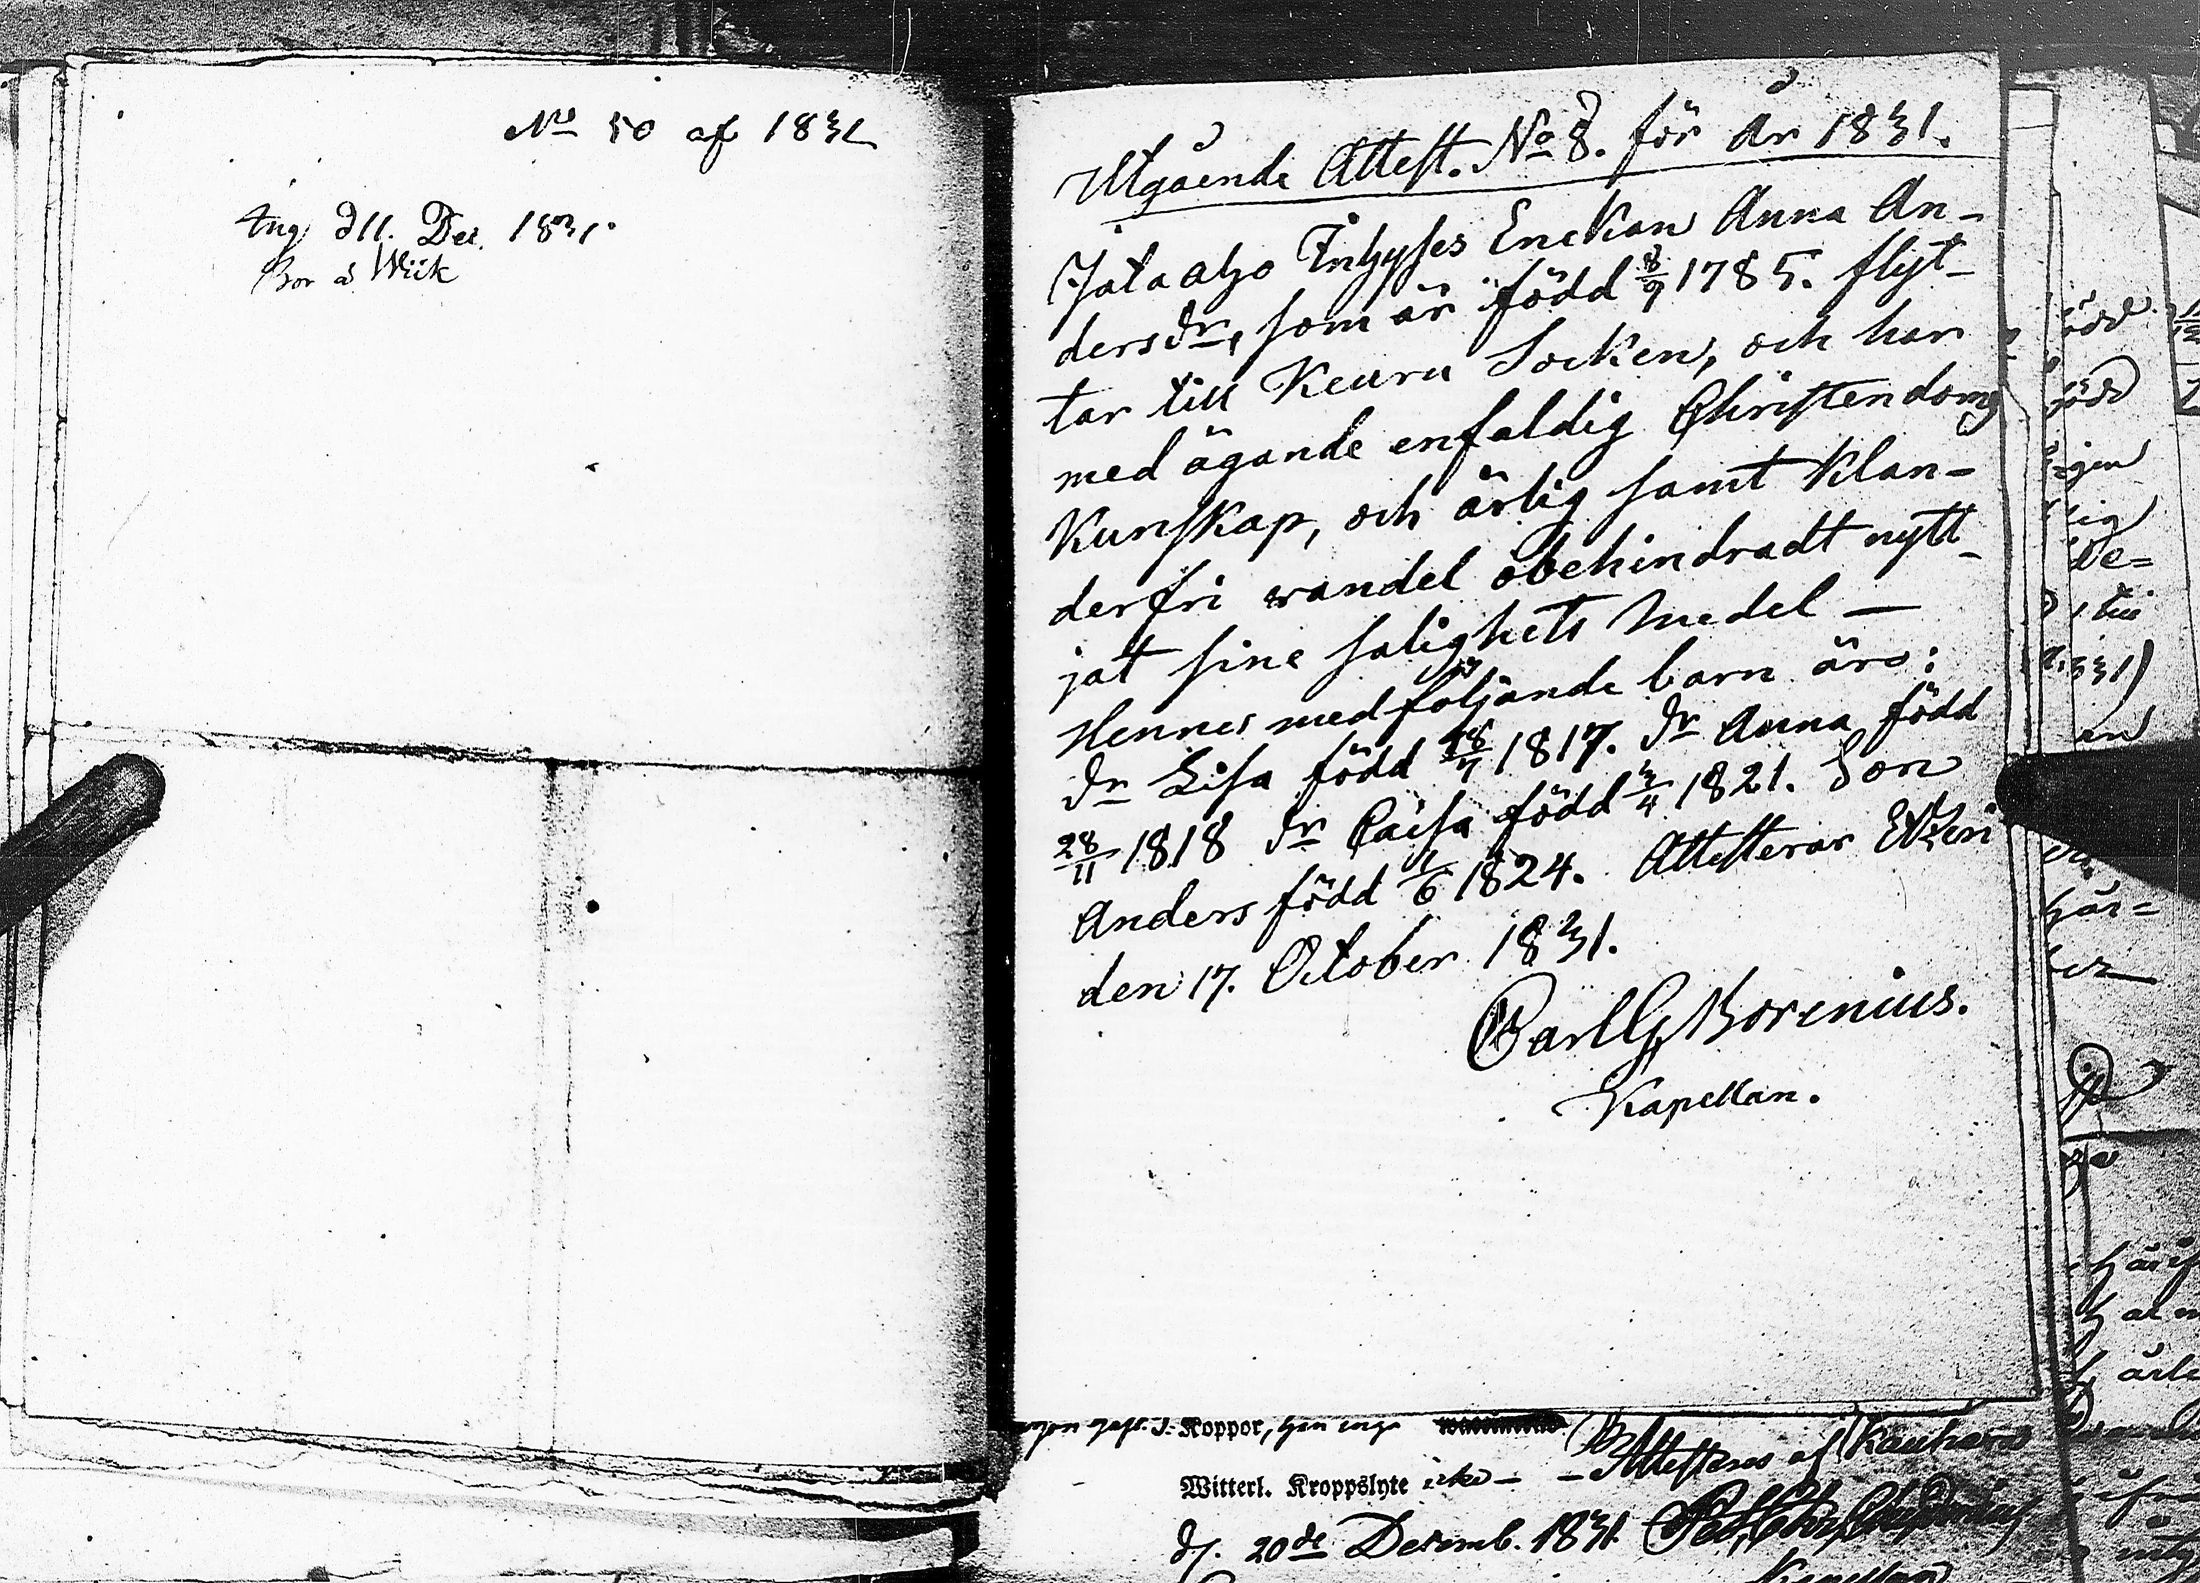 No 50 af 1831
Ing d 11. Dec. 1831.
Bor å Wiik
Utgående Attest. No 8. för år 1831.
Jataaho Inhyses Enckan Anna An-
ders dr, som är född 8/9 1785. flyt-
tar till Keuru Socken, och har
med ägande enfaldig Christendoms
Kunskap, och ärlig samt Klan-
derfri wandel obehindradt nytt-
jat sine salighets medel —
Hennes medföljande barn äro:
dr Lisa född 1817. dr Anna född
28/11 1818 dr Caisa född 3/4 1821. Son
Anders född 1/6 1824. Attesterar Etzeri
den 17. October 1831.
Carl G Borenius.
Kapellan.
Koppor,
Witterl. Kroppslyte icke —
— Attesteras af Kauhava
d. 20de Decemb. 1831